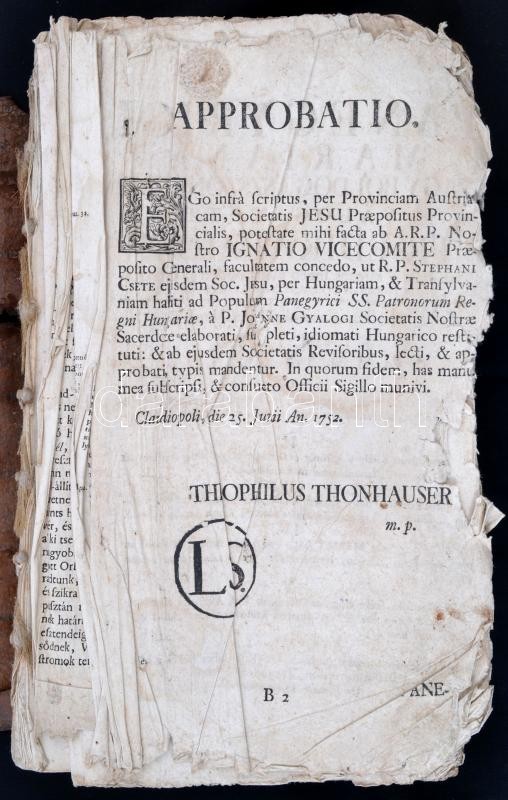 APPROBATIO.
EGo infrà scriptus, per Provinciam Austria
cam, Societatis JESU Præpositus Provin-
cialis, potestate mihi facta ab A.R.P. No-
stro IGNATIO VICECOMITE Præ-
posito Generali, facultatem concedo, ut R.P. STEPHANI
CSETE ejusdem Soc. JESU, per Hungariam, & Transylva-
niam habiti ad Populum Panegyrici SS. Patronorum Re-
gni Hungariæ, à P. JOANNE GYALOGI Societatis Nostræ
Sacerdote elaborati, suppleti, idiomati Hungarico resti-
tuti: & ab ejusdem Societatis Revisoribus, lecti, & ap-
probati, typis mandentur. In quorum fidem, has manu
mea subscripsi, & consueto Officii Sigillo munivi.
Claudiopoli, die 25. Junii An. 1752.
THEOPHILUS THONHAUSER
m. p.
LS.
B 2
PANE-
ver, és
a ki tse
nagyob
gott Orl
radtunk,
és szikra
pisztán
nék határ
esztendeig
södnek, V
stromok ter